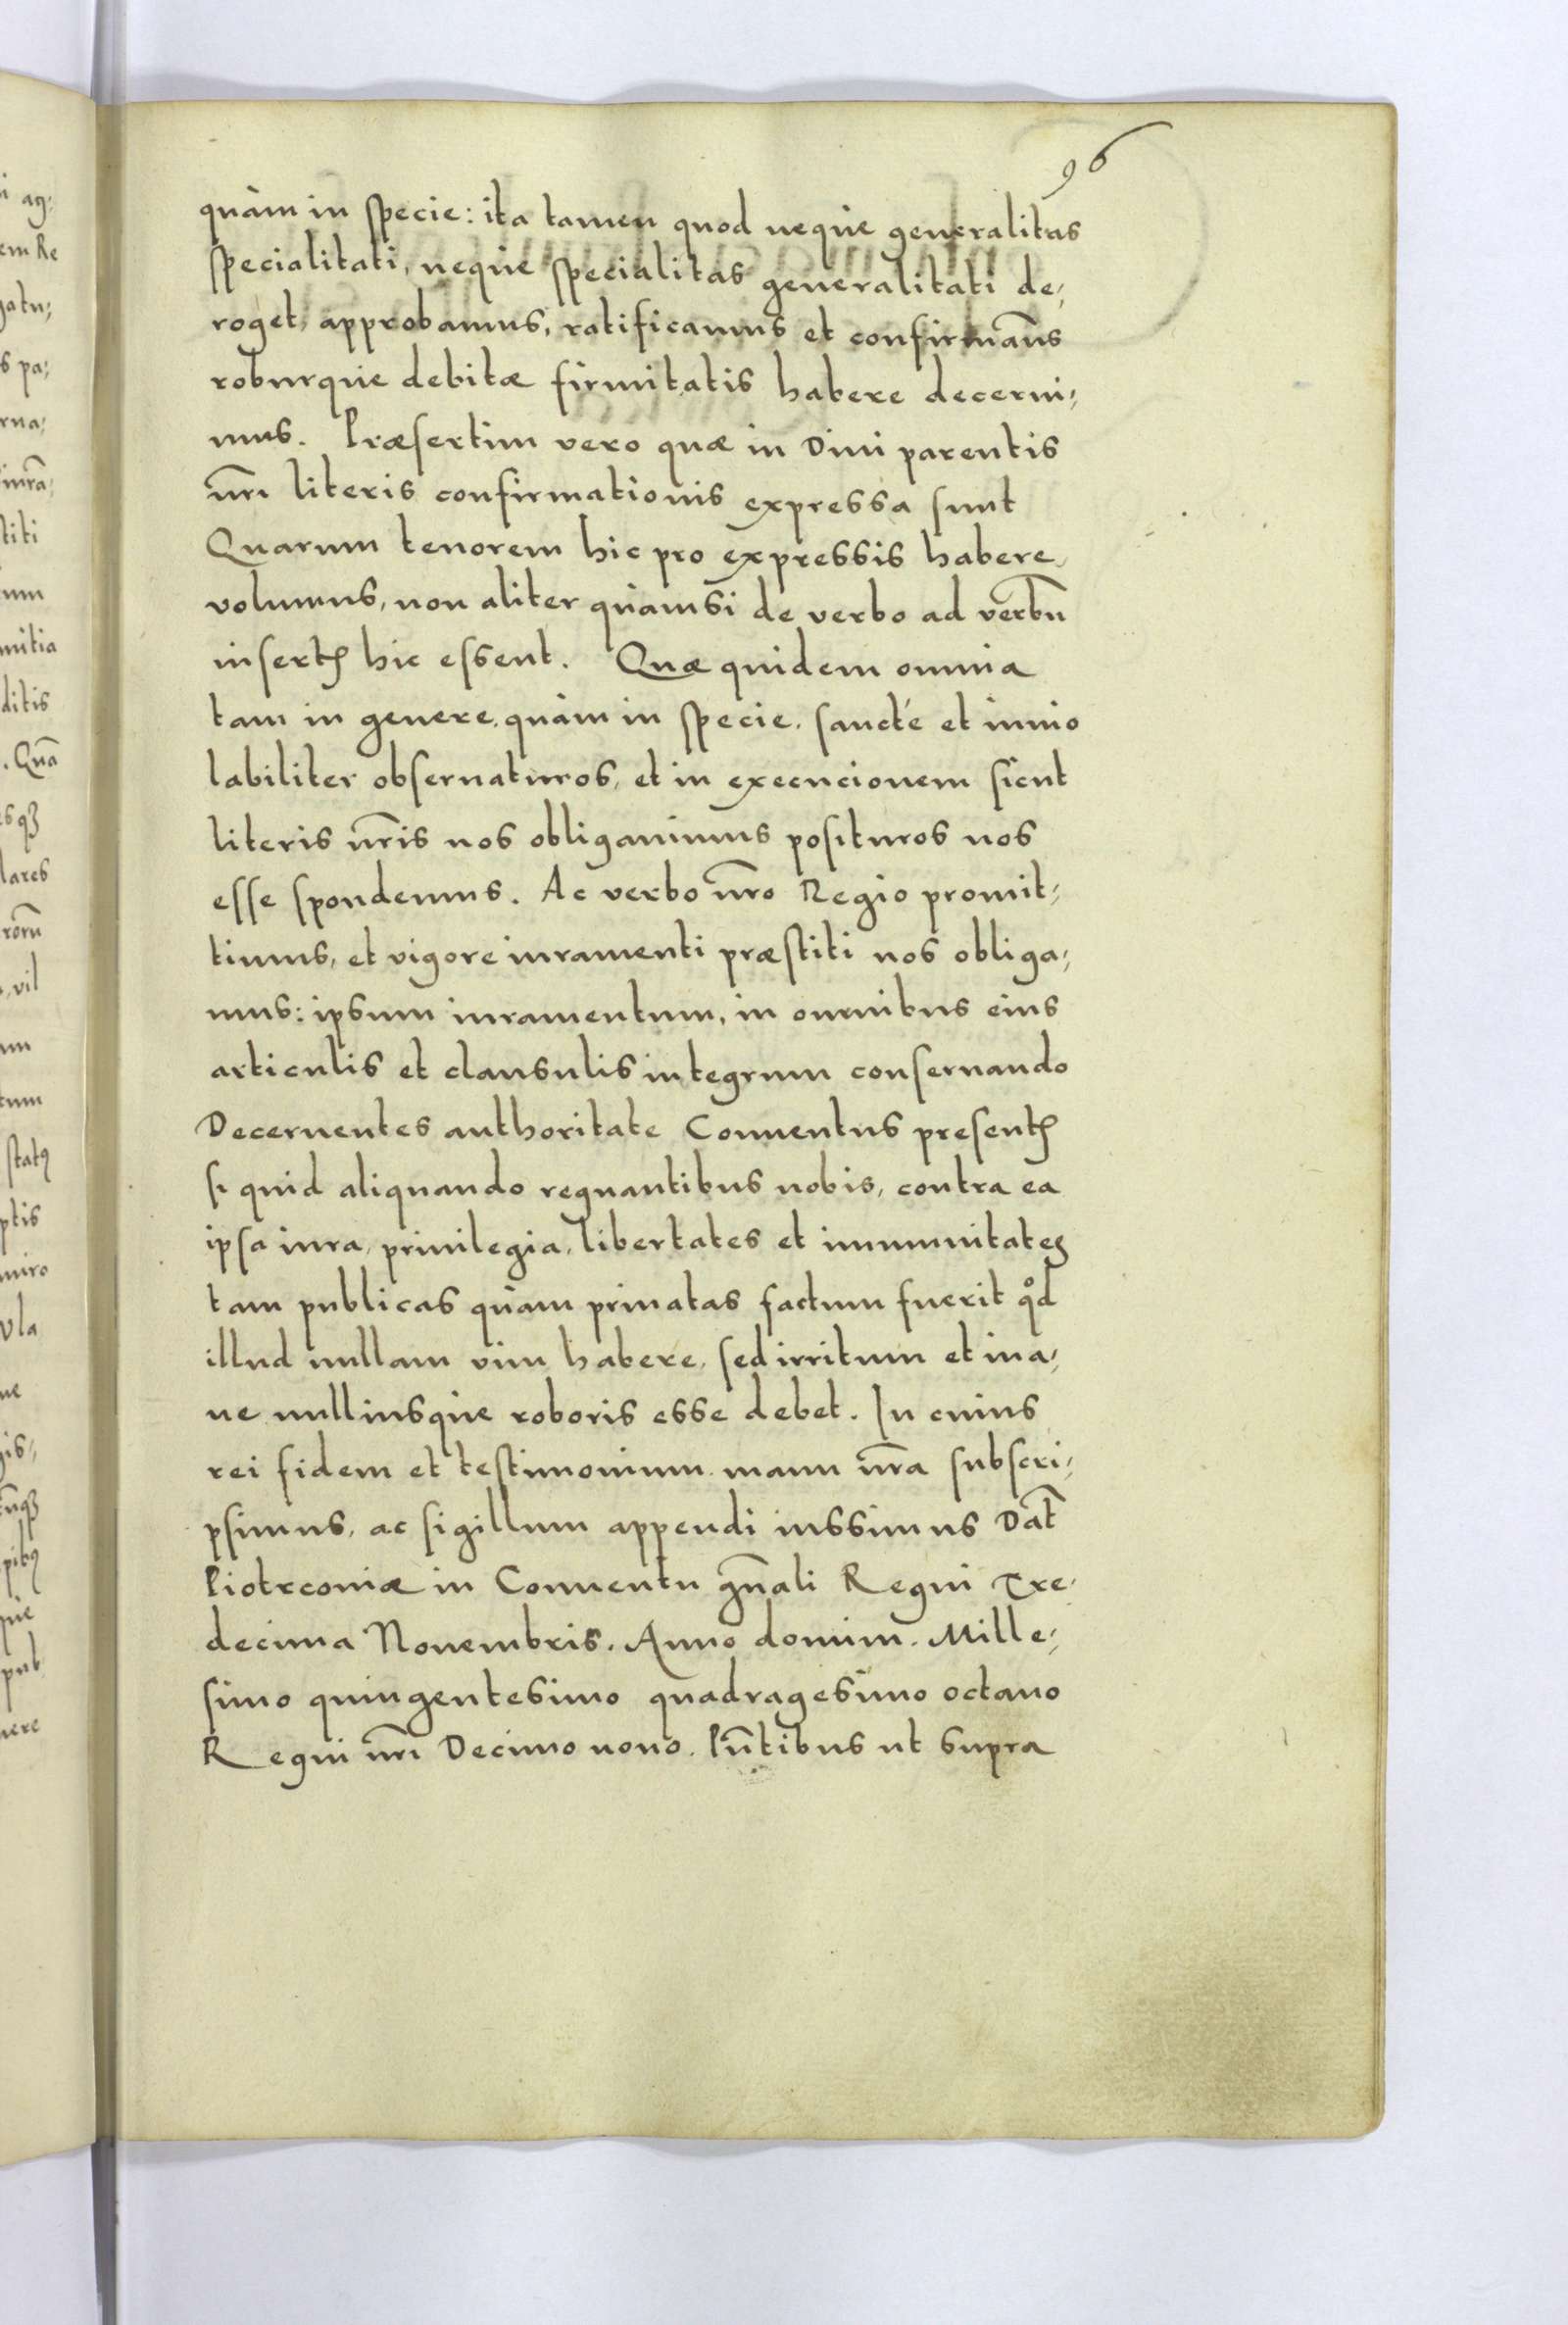 96
quàm in specie: ita tamen quod neque generalitas
specialitati, neque specialitas generalitati de,
roget, approbamus, ratificamus et confirmam̃s
roburque debitæ firmitatis habere decerni,
mus. Præsertim vero quæ in Diui parentis
nr̃i literis confirmationis expressa sunt
Quarum tenorem hic pro expressis habere
volumus, non aliter quàmsi de verbo ad verbũ
insertꝭ hic essent. Quæ quidem omnia
tam in genere quàm in specie, sancté et inuio
labiliter obseruaturos, et in execucionem sicut
literis nr̃is nos obligauimus posituros nos
esse spondemus. Ac verbo nr̃o Regio promit,
timus, et vigore iuramenti præstiti nos obliga,
mus: ipsum iuramentum, in omnibus eius
articulis et clausulis integrum conseruando
Decernentes authoritate Conuentus presentꝭ
si quid aliquando regnantibus nobis, contra ea
ipsa iura, priuilegia, libertates et immunitates
tam publicas quàm priuatas factum fuerit qd̊
illud nullam vim habere, sed irritum et ina,
ne nulliusque roboris esse debet. In cuius
rei fidem et testimonium manu nr̃a subscri,
psimus, ac sigillum appendi iussimus Dat̃
Piotrconiæ in Conuentu gñali Regni Tre,
decima Nouembris. Anno domini. Mille,
simo quingentesimo quadragesimo octauo
Regni nr̃i Decimo nono. Pñtibus ut supra